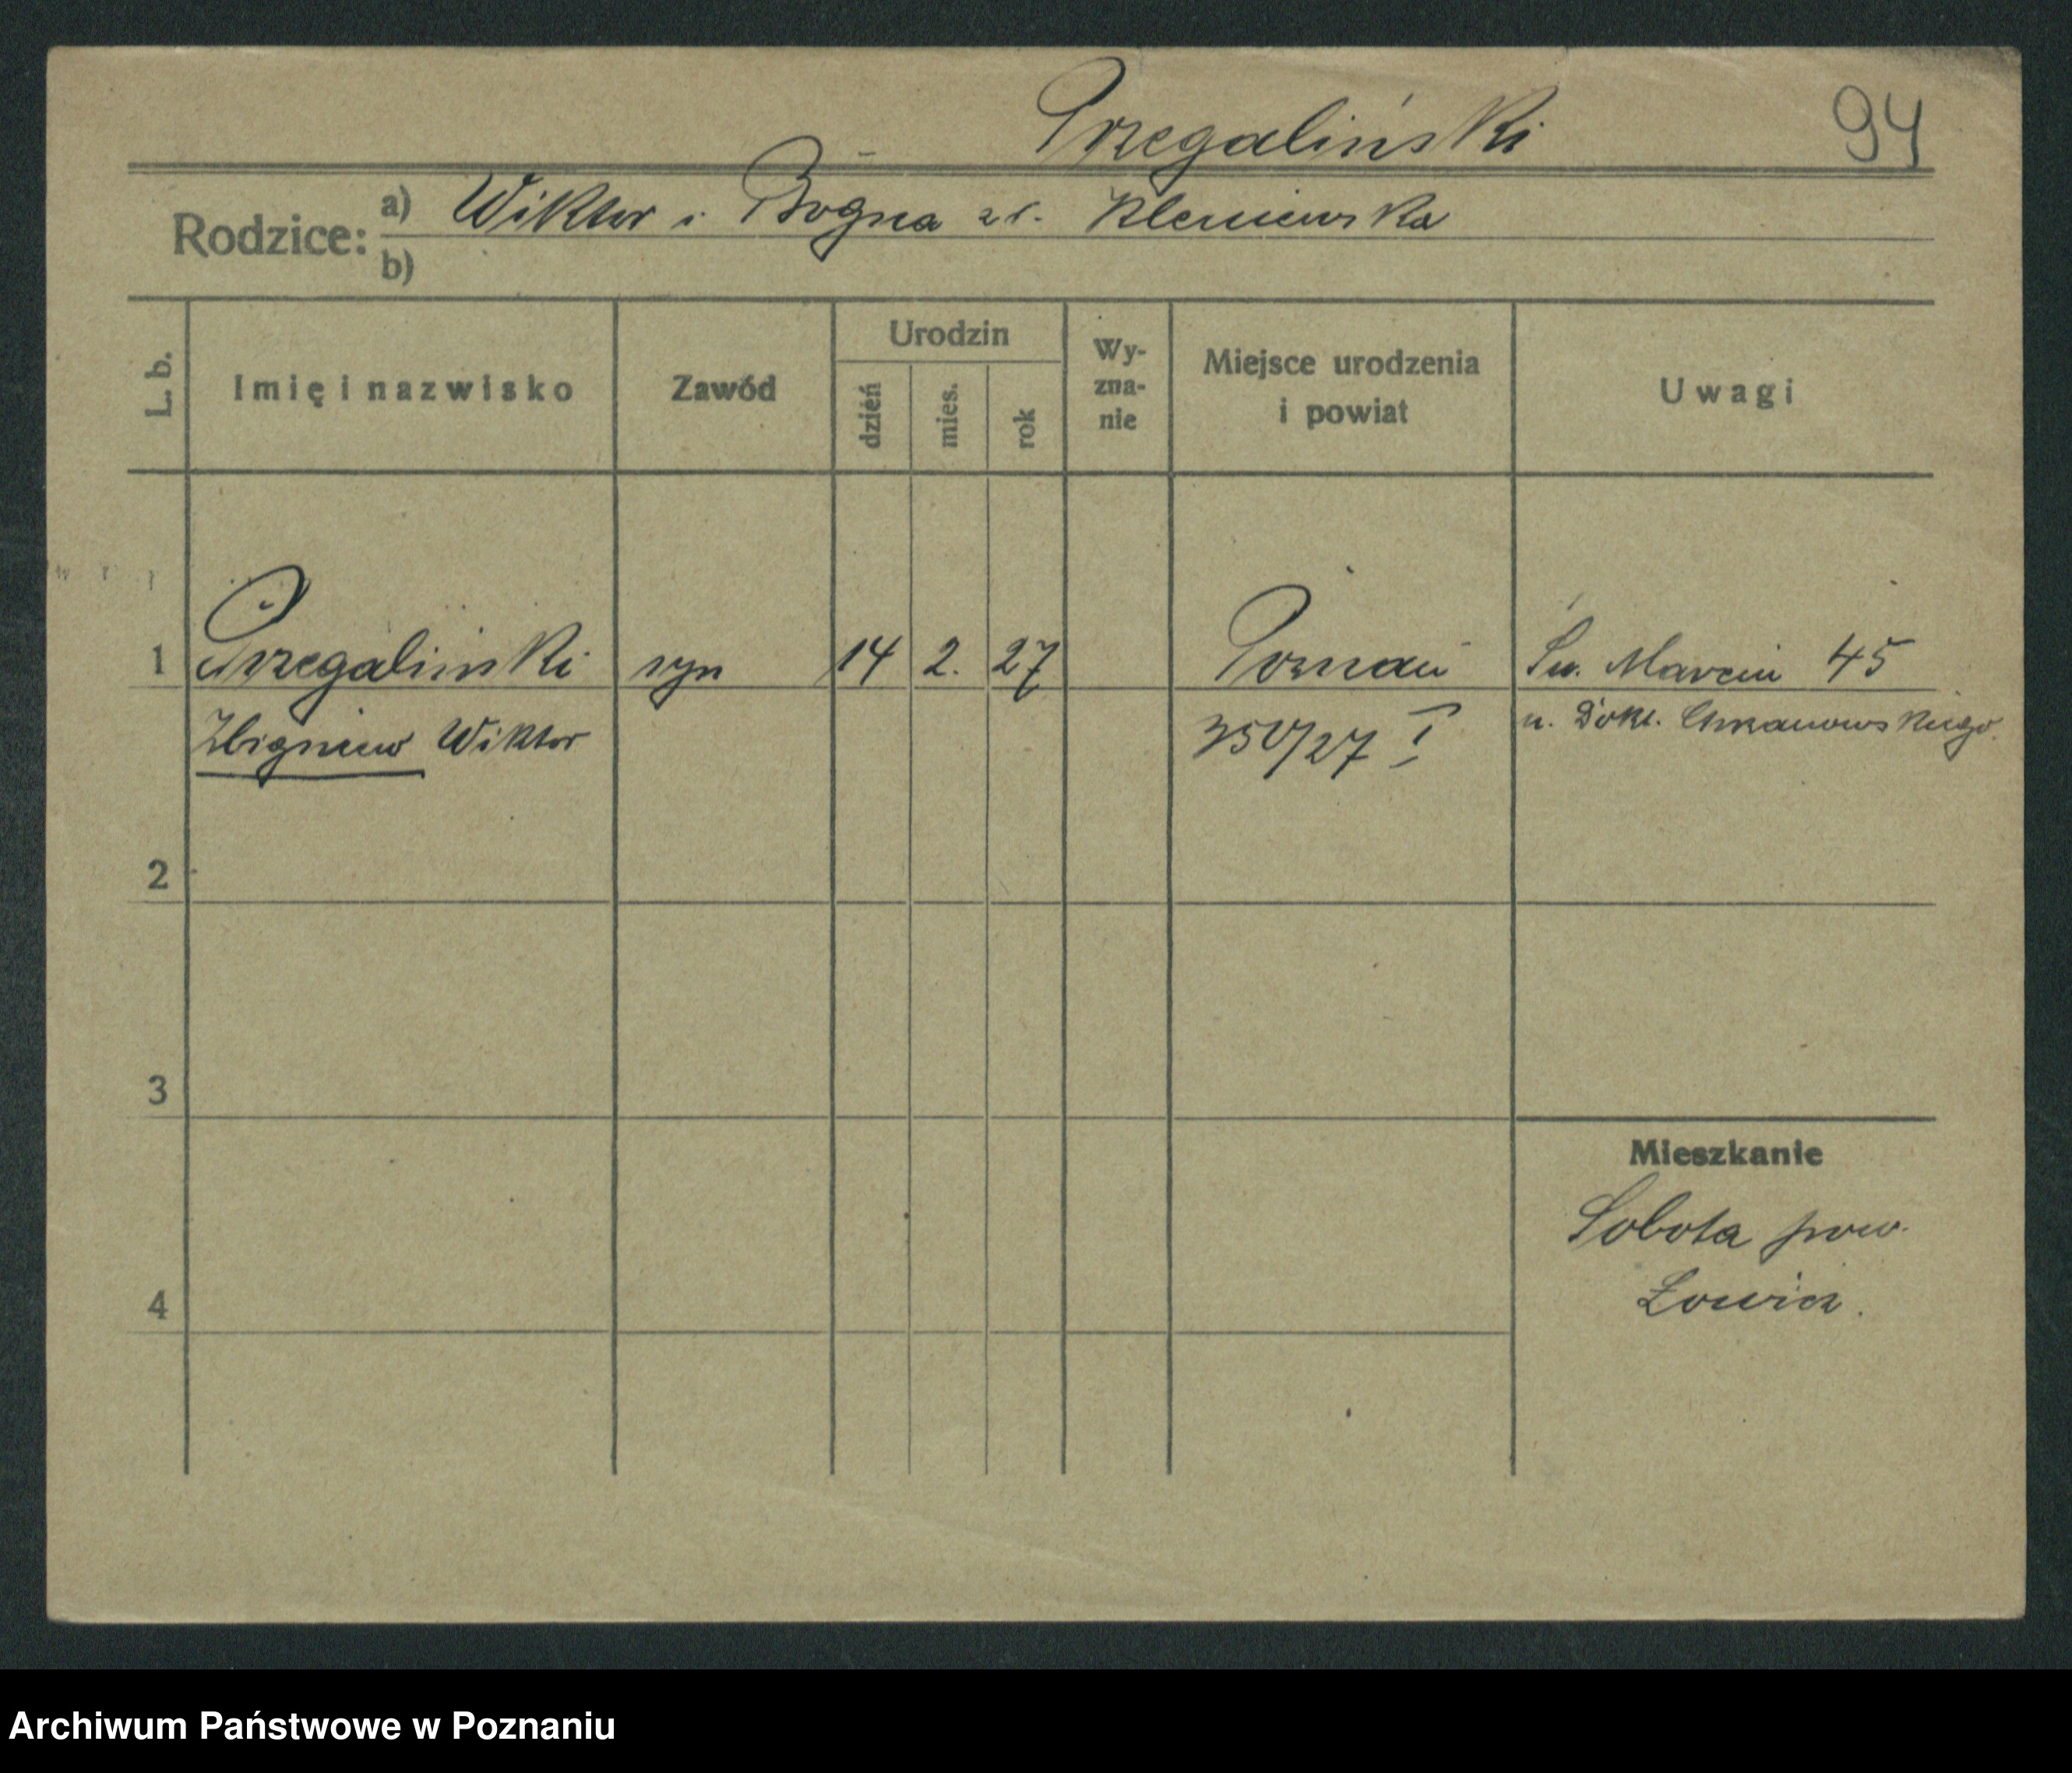 Przegaliński
94
Rodzice: a) Wiktor i Bogna zd. Kleniewska
b)
L. b.
Imię i nazwisko
Zawód
Urodzin
dzień
mies.
rok
Wy-
zna-
nie
Miejsce urodzenia
i powiat
Uwagi
1 Przegaliński syn 14 2. 27 Poznań Św. Marcin 45
Zbigniew Wiktor 350/27 I u. Dokt.
2
3
Mieszkanie
Sobota pow.
4 Łowicz.
Archiwum Państwowe w Poznaniu